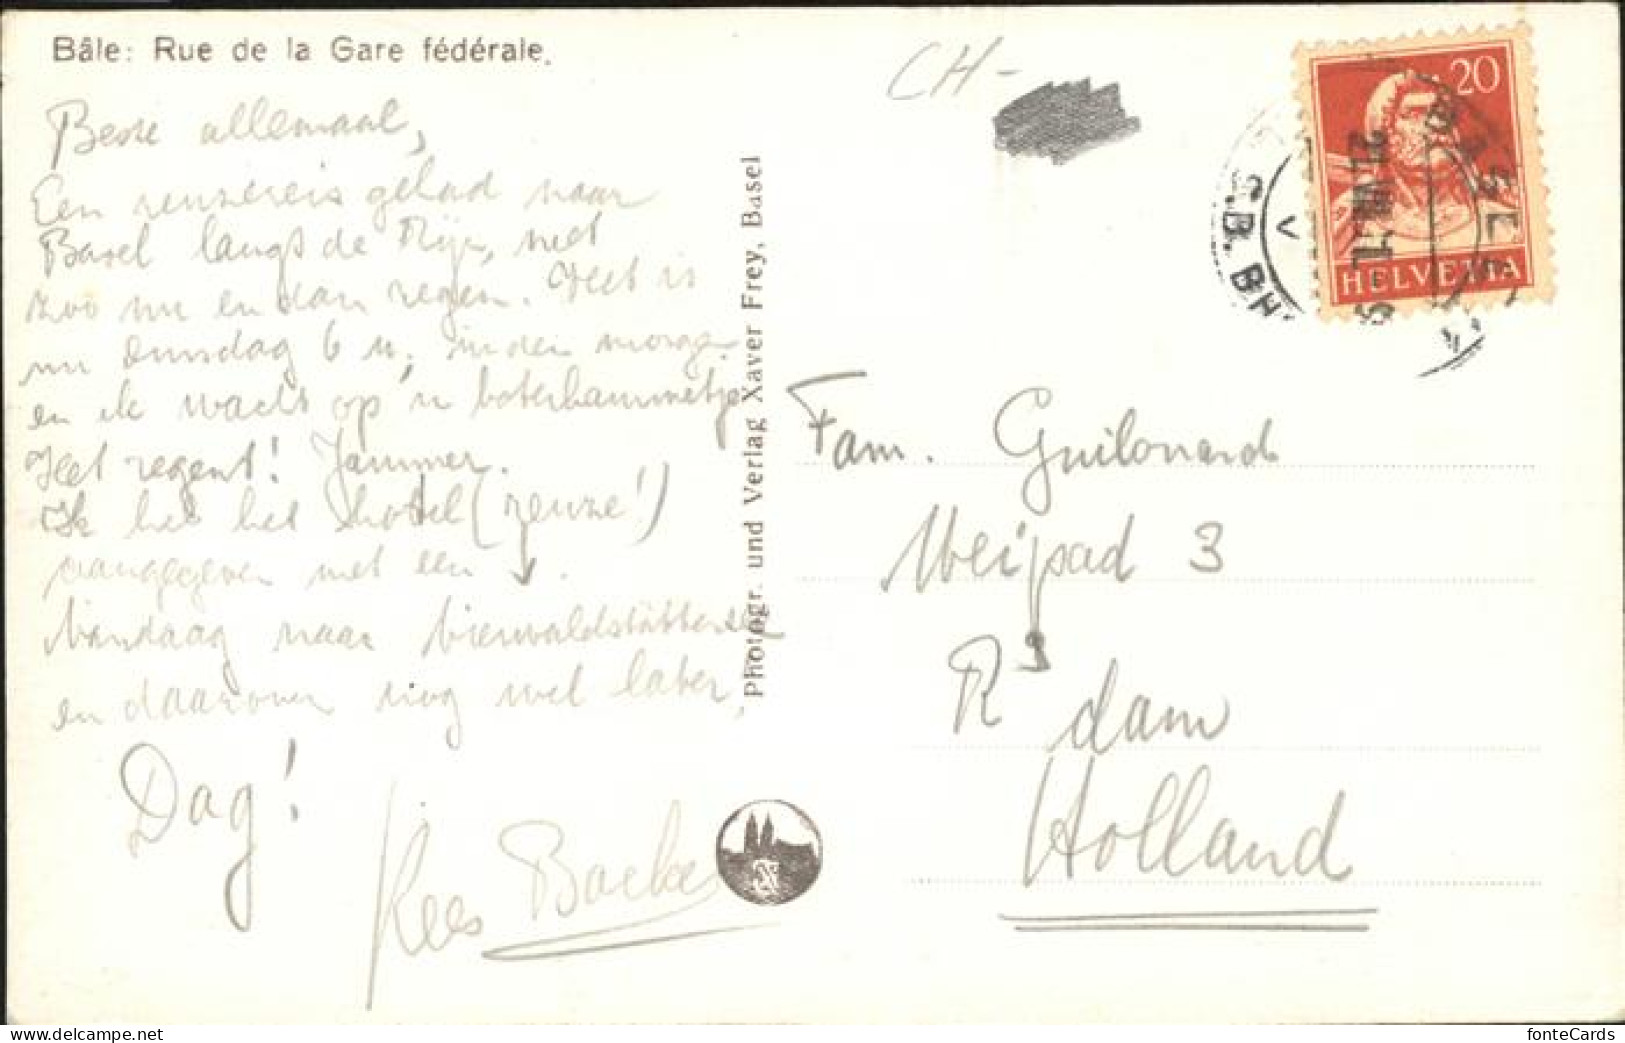 Bâle: Rue de la Gare fédérale.
Beste allemaal,
Een reuzereis gehad naar
Basel langs de Rijn, met
zoo nu en dan regen. Het is
nu dinsdag 6 u. in den morg-
en en ik wacht op 'n boterhammetje
Het regent! Jammer.
Ik heb het hotel (reuze!)
aangegeven met een ↓.
Vandaag naar Vierwaldstättersee
en daarover nog wel later.
Dag!
Kees
Photogr. und Verlag Xaver Frey, Basel
CH-
20
HELVETIA
BASEL
S.B.B.
Fam. Guilonard
Meipad 3
R'dam
Holland
fonteCards
www.delcampe.net